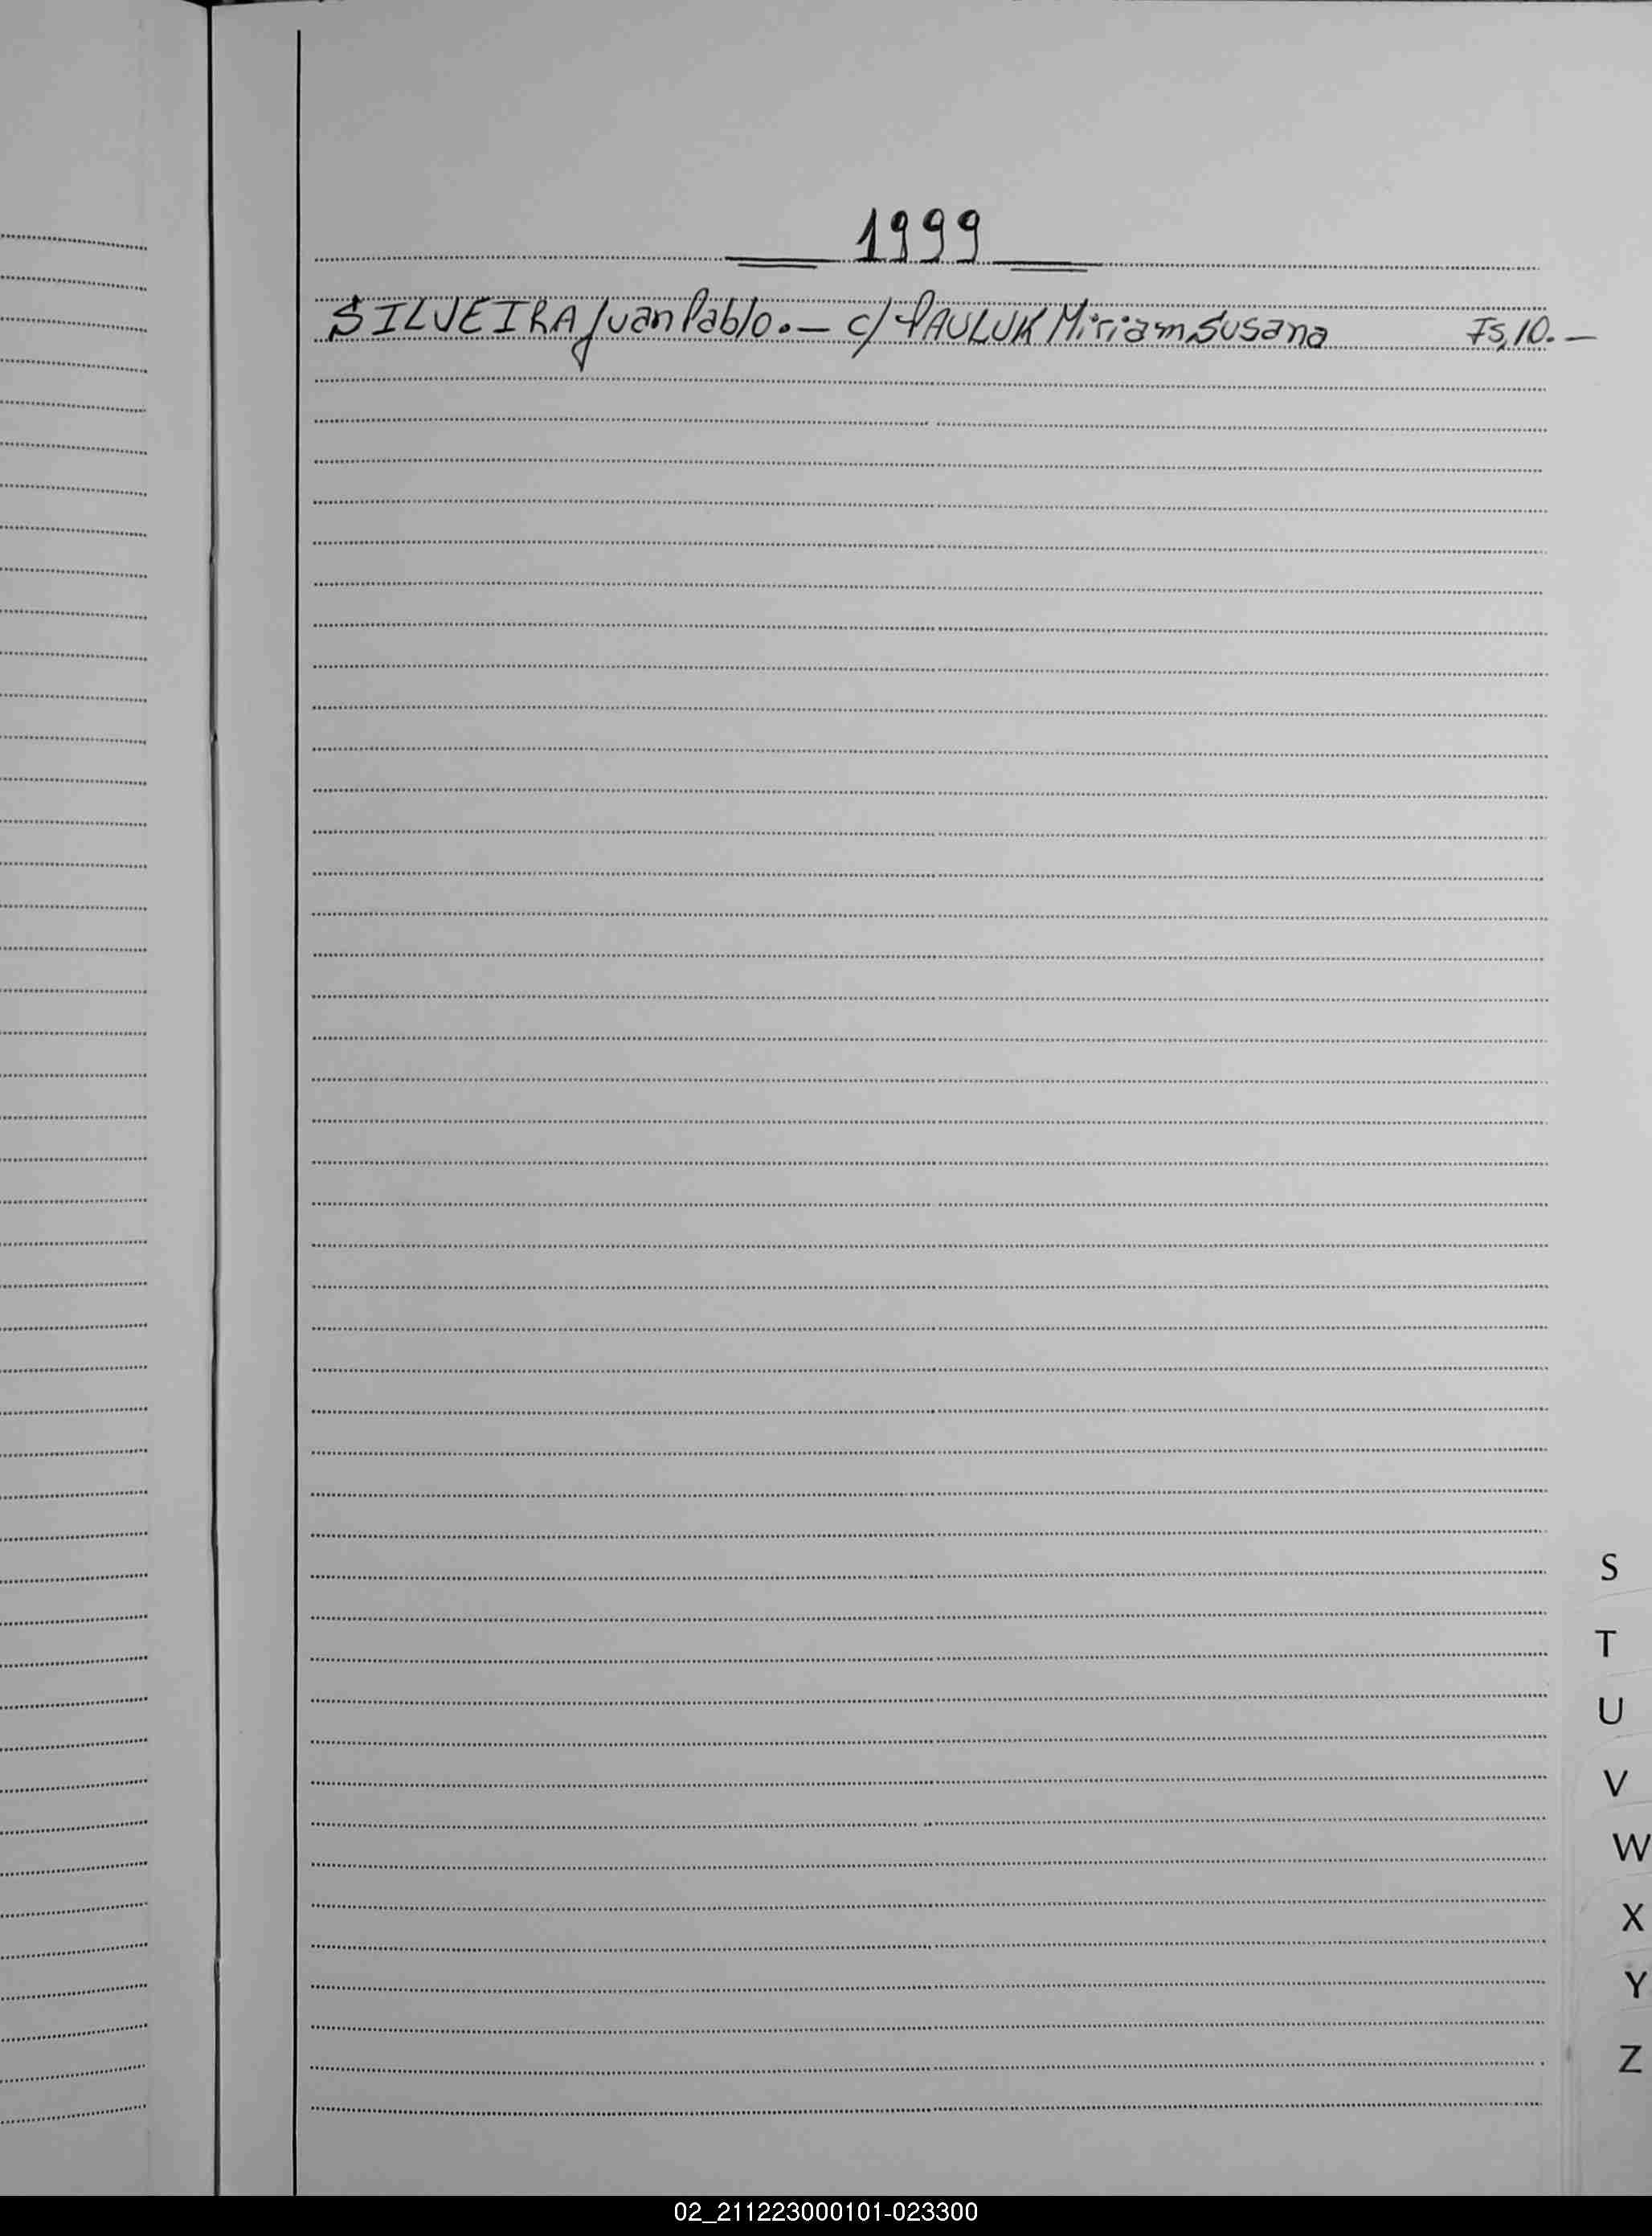 1999
SILVEIRA Juan Pablo.— c/ PAULUK Miriam Susana Fs, 10.—
S
T
U
V
W
X
Y
Z
02_211223000101-023300